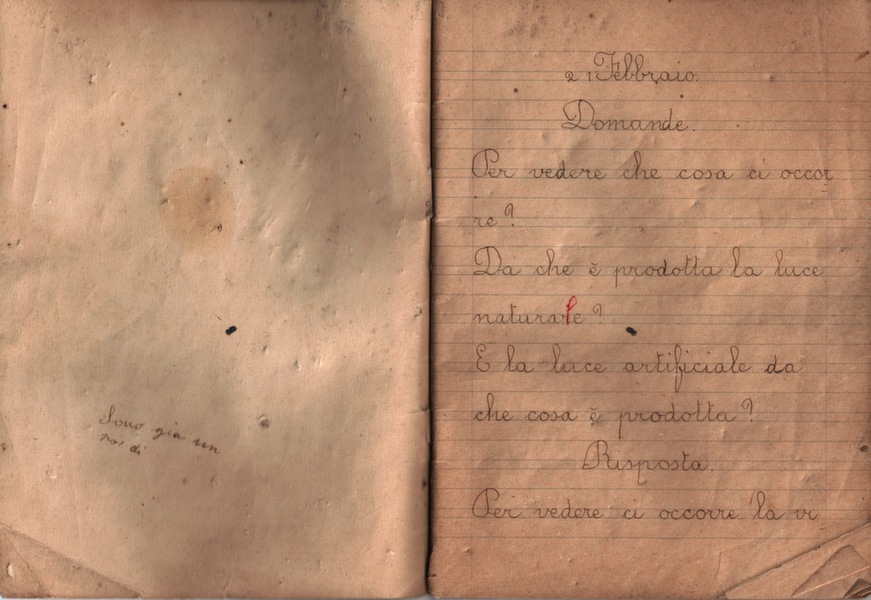 Sono già un
di
21 Febbraio.
Domande.
Per vedere che cosa ci occor
re?
Da che è prodotta la luce
naturale?
E la luce artificiale da
che cosa è prodotta?
Risposta.
Per vedere ci occorre la vi